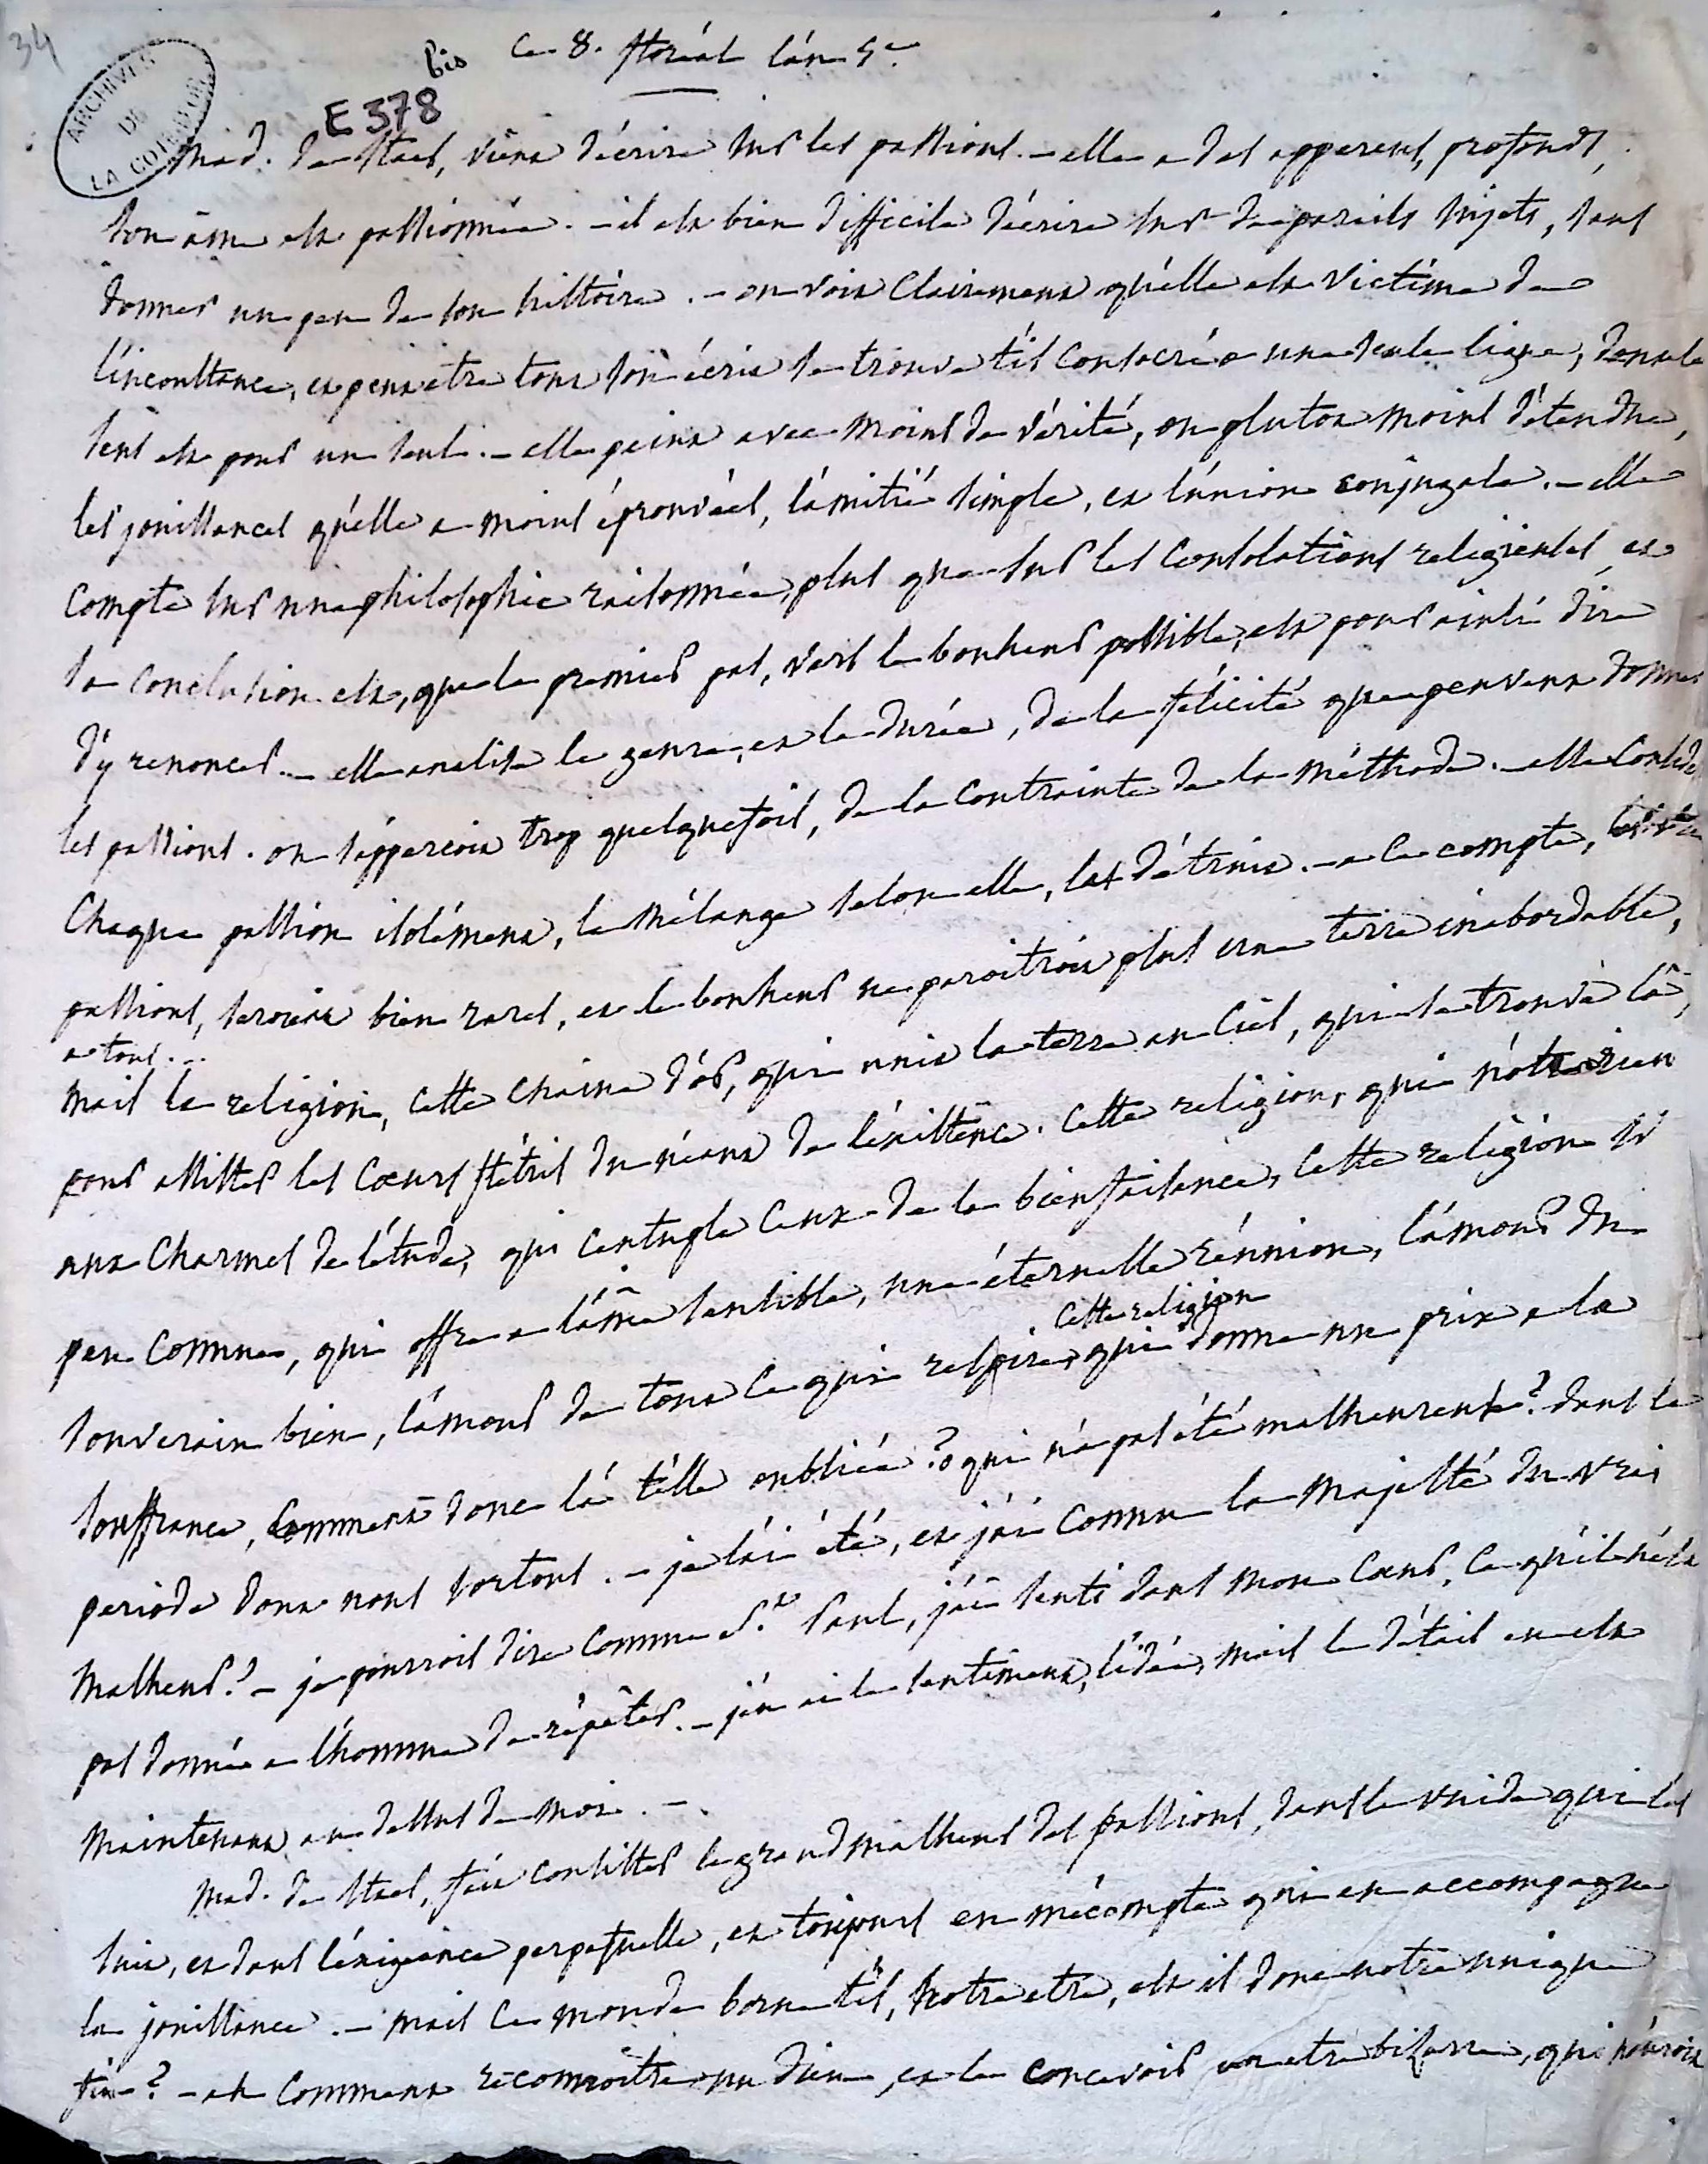 34
ARCHIVES
DE
LA COTE-D'OR
bis
E 378
Ce 8. floréal l'an 5e.
Mad. de Stael, vient d'écrire sur les passions. - elle a des apperçus, profonds,
son ame est passionnée. - il est bien difficile d'écrire sur de pareils sujets, sans
donner un peu de son histoire. - on voit clairement qu'elle est victime de
l'inconstance, et peut etre tout son écrit se trouve t'il consacré a une seule ligne, dont le
sens est pour un seul. - elle peint avec moins de vérité, ou plutot moins d'étendue,
les jouissances qu'elle a moins éprouvées, l'amitié simple, et l'union conjugale. - elle
compte sur une philosophie raisonnée, plus que sur les consolations religieuses, et
sa conclusion est, que le premier pas, vers le bonheur possible, est pour ainsi dire
d'y renoncer. - elle analise le genre, et la durée, de la félicité que peuvent donner
les passions. on s'apperçoit trop quelquefois, de la contrainte de la méthode. - elle considere
chaque passion isolément, le mélange selon elle, les détruit. - a ce compte, les
passions, seroient bien rares, et le bonheur ne paroitroit plus une terre inabordable,
a tous. . .
mais la religion, cette chaine d'or, qui unit la terre au ciel, qui se trouve là,
pour assister les coeurs flétris du néant de l'existence. cette religion, qui n'ote rien
aux charmes de l'étude, qui centuple ceux de la bienfaisance, cette religion si
peu connue, qui offre a l'âme sensible, une éternelle réunion, l'amour du
souverain bien, l'amour de tout ce qui respire, cette religion qui donne un prix a la
souffrance, comment donc l'a t'elle oubliée? qui n'a pas été malheureuse? dans la
periode dont nous sortons. - je l'ai été, et j'ai connu la majesté du vrai
malheur? - je pourrois dire comme St. Paul, j'ai senti dans mon coeur, ce qu'il n'est
pas donné a l'homme de répéter. - j'en ai le sentiment, l'idée, mais le détail en est
maintenant au dessus de moi. -
Mad. de Stael, fait consister le grand malheur des passions, dans le vuide qui les
suit, et dans l'exigeance perpetuelle, et toujours en mécompte qui en accompagne
la jouissance. - mais ce monde borne t'il, notre etre, est il donc notre unique
fin? - eh comment reconnoitre un dieu, et le concevoir un etre bisarre, qui n'auroit